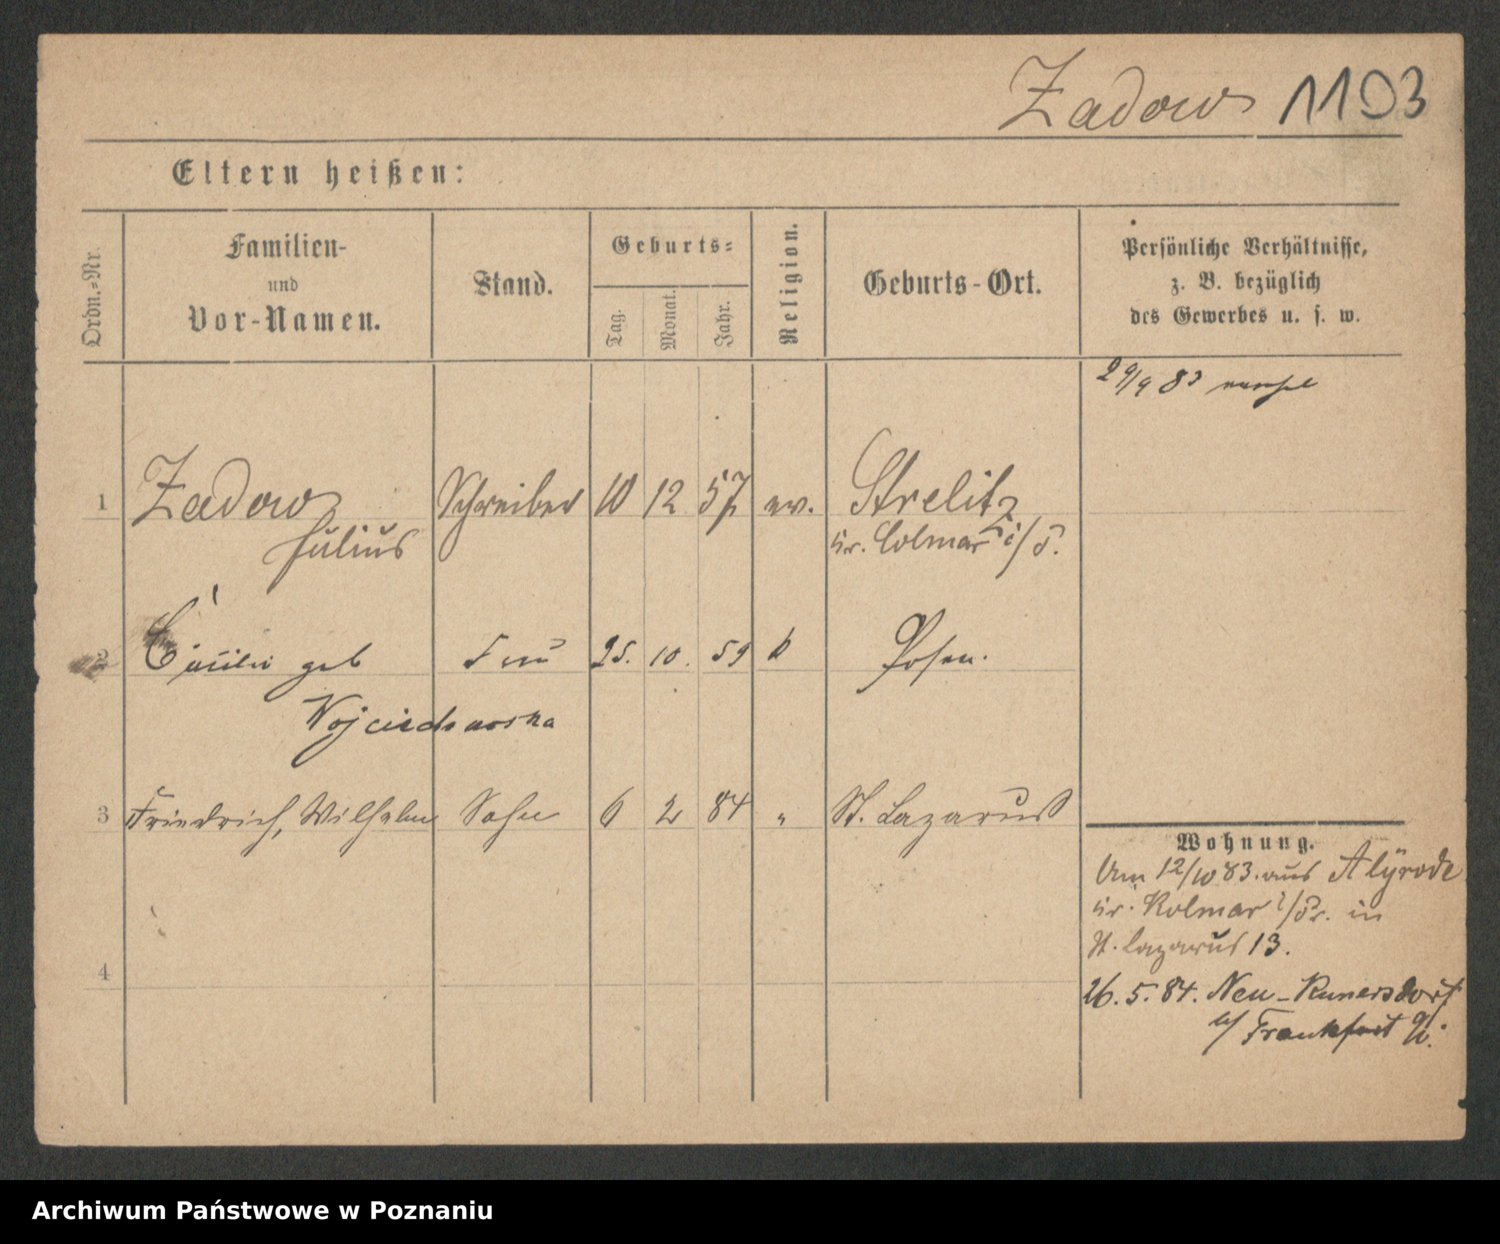 Zadow 1103
Eltern heißen:
Ordn.-Nr.
Familien-
und
Vor-Namen.
Stand.
Geburts-
Tag.
Monat.
Jahr.
Religion.
Geburts-Ort.
Persönliche Verhältnisse,
z. B. bezüglich
des Gewerbes u. s. w.
29/9 83
1 Zadow Schreiber 10 12 57 ev. Strelitz
Julius Kr. Colmar i/P.
2 Cäcilie geb Frau 25. 10. 59 k Posen.
Wojciechowska
3 Friedrich, Wilhelm Sohn 6 2 84 " St. Lazarus
Wohnung.
Am 12/10 83. aus
Kr. Kolmar i/Pr. in
St. Lazarus 13.
26. 5. 84. Neu-Kunersdorf
b/ Frankfurt
4
Archiwum Państwowe w Poznaniu